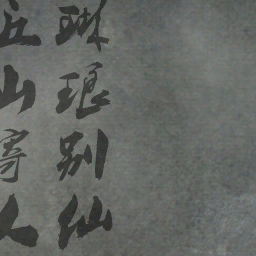 琳琅别仙
丘山寄人